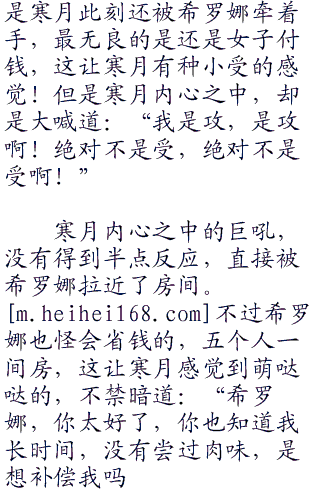 是寒月此刻还被希罗娜牵着
手，最无良的是还是女子付
钱，这让寒月有种小受的感
觉！但是寒月内心之中，却
是大喊道：“我是攻，是攻
啊！绝对不是受，绝对不是
受啊！”
寒月内心之中的巨吼，
没有得到半点反应，直接被
希罗娜拉近了房间。
[m.heihei168.com]不过希罗
娜也怪会省钱的，五个人一
间房，这让寒月感觉到萌哒
哒的，不禁暗道：“希罗
娜，你太好了，你也知道我
长时间，没有尝过肉味，是
想补偿我吗